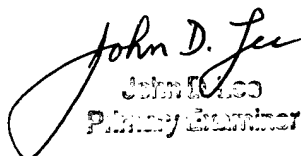 John D. Lee
John D. Lee
Primary Examiner